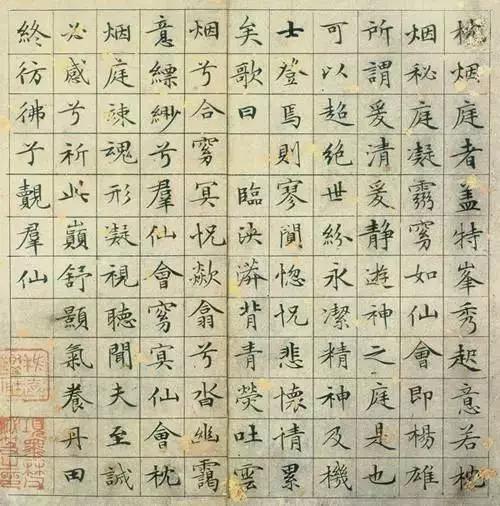 枕烟庭者盖特峯秀起意若枕
烟秘庭凝霛窅如仙會即楊雄
所謂爰清爰靜遊神之庭是也
可以超絕世紛永潔精神及機
士登焉則寥閴惚怳悲懷情累
矣歌曰 臨泱漭背青熒吐雲
烟兮合窅冥怳欻翕兮沓幽靄
意縹緲兮羣仙會窅冥仙會枕
烟庭竦魂形凝視聽聞夫至誠
必感兮祈此巔舒顥氣養丹田
終彷彿乎覿羣仙